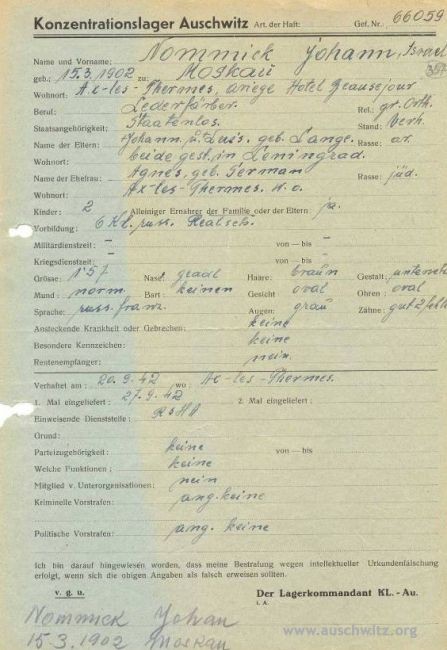 Konzentrationslager Auschwitz Art. der Haft: Gef. Nr.: 66059
Name und Vorname: Nommick Johann, Israel
geb.: 15.3.1902 zu: Moskau
Wohnort: Ax-les-Thermes, ariege Hotel Beausejour
Beruf: Lederfärber. Rel. gr. Orth.
Staatsangehörigkeit: Staatenlos. Stand: verh.
Name der Eltern: Johann u. Luis. geb. Lange. Rasse: ar.
Wohnort: beide gest. in Leningrad.
Name der Ehefrau: Agnes, geb. German Rasse: jüd.
Wohnort: Ax-les-Thermes. w.o.
Kinder: 2 Alleiniger Ernährer der Familie oder der Eltern ja.
Vorbildung: 6 Kl. russ. Realsch.
Militärdienstzeit: – von — bis –
Kriegsdienstzeit: – von — bis –
Grösse: 1'57 Nase: grad Haare: braun Gestalt: unters.
Mund: norm. Bart: keinen Gesicht oval Ohren: oval
Sprache: russ. franz. Augen: grau Zähne: gut 2 fehl.
Ansteckende Krankheit oder Gebrechen: keine
Besondere Kennzeichen: keine
Rentenempfänger: nein.
Verhaftet am: 20.9.42 wo: Ax-les-Thermes.
1. Mal eingeliefert: 27.9.42 2. Mal eingeliefert:
Einweisende Dienststelle: RSHA
Grund:
Parteizugehörigkeit: keine von — bis
Welche Funktionen: keine
Mitglied v. Unterorganisationen: nein
Kriminelle Vorstrafen: ang. keine
Politische Vorstrafen: ang. keine
Ich bin darauf hingewiesen worden, dass meine Bestrafung wegen intellektueller Urkundenfälschung
erfolgt, wenn sich die obigen Angaben als falsch erweisen sollten.
v. g. u. Der Lagerkommandant KL. - Au.
i. A.
Nommick Johan
15.3.1902 Moskau
www.auschwitz.org